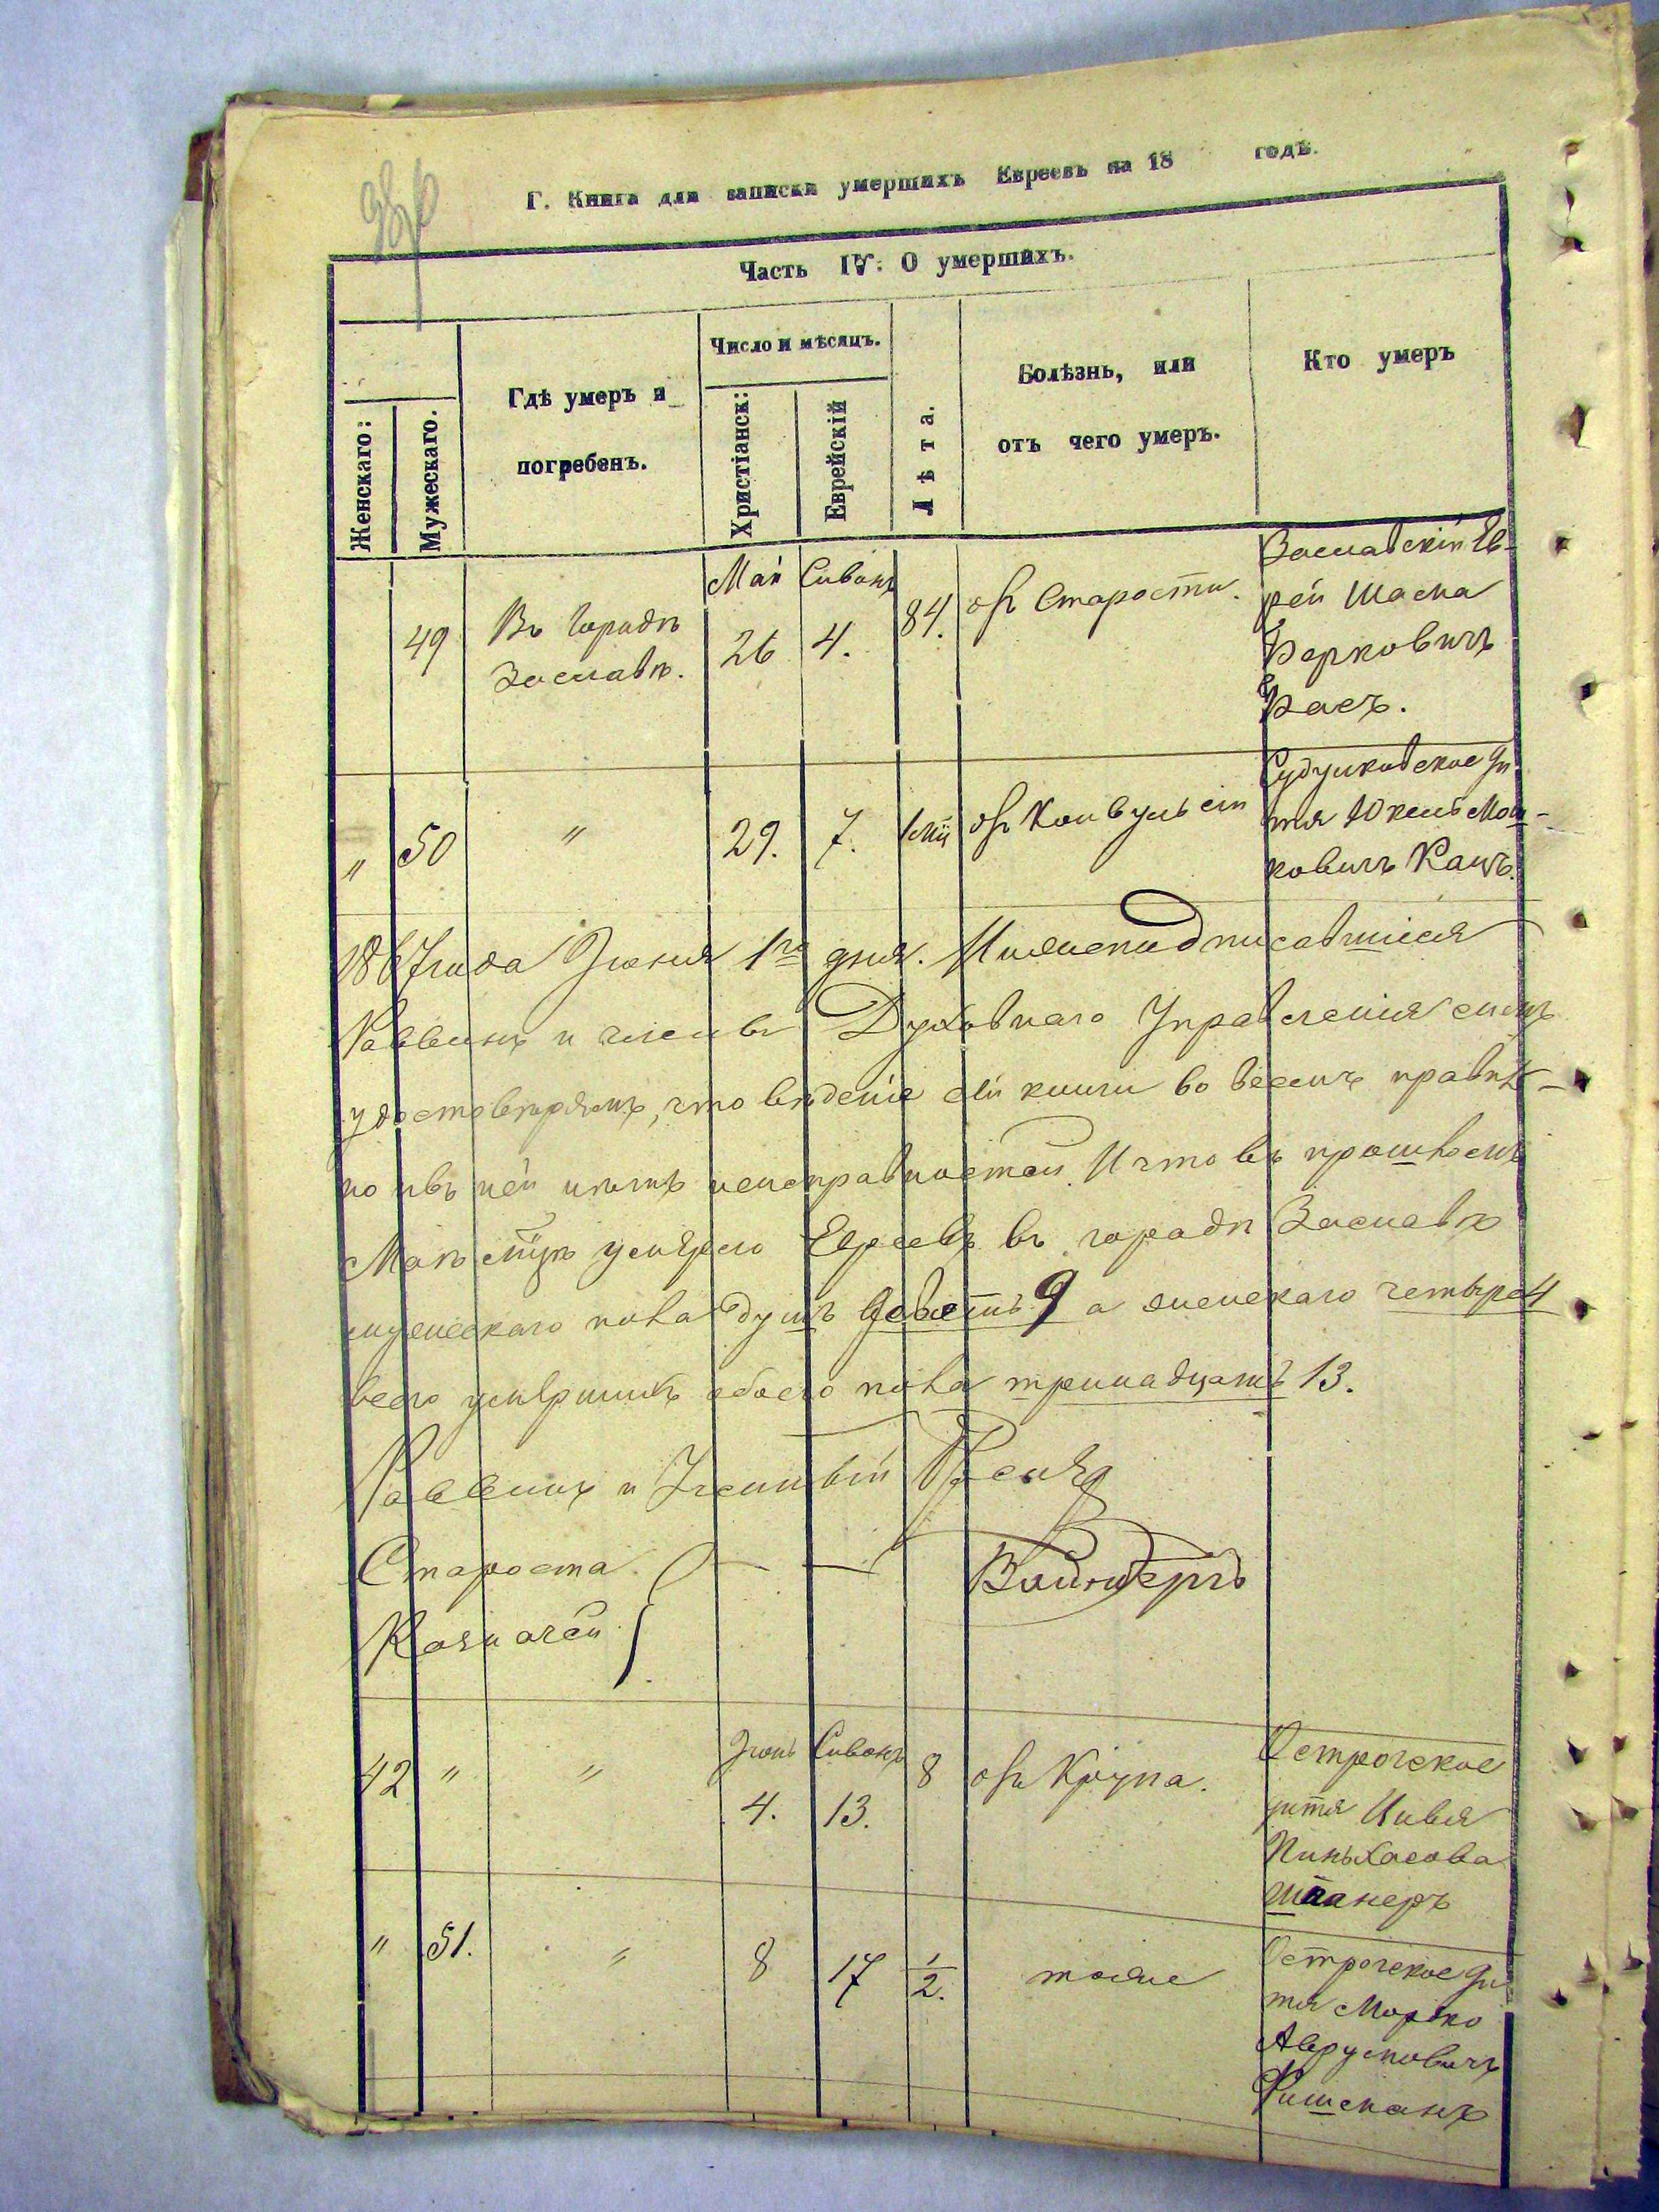 Г. Книга для записки умершихъ Евреевъ на 18 годъ.
Часть IV: О умершихъ.
Женскаго:
Мужескаго.
Гдѣ умеръ и
погребенъ.
Число и мѣсяцъ.
Христіанск:
Еврейскій
Лѣта.
Болѣзнь, или
отъ чего умеръ.
Кто умеръ
49
Въ городѣ
Заславѣ.
Май
26
Сиванъ
4.
84.
отъ Старости.
Заславскій Ев-
рей
Берковичъ
"
50
"
29.
7.
отъ Конвульсіи
Судилковское ди
тя Юкель Мош-
ковичъ Кацъ.
1867 года Іюня 1го дня. Нижеподписавшіеся
Раввинъ и члены Духовнаго Управленія симъ
удостовѣряемъ, что веденіе сей книги во всемъ правиль-
но и въ ней нѣтъ неисправностей. И что въ прошломъ
Маѣ мѣсяцѣ умерло Евреевъ въ городѣ Заславѣ
мужескаго пола душъ девять 9 а женскаго четыре 4
всего умершихъ обоего пола тринадцать 13.
Раввинъ и Ученый
Староста
Казначей
42
"
"
Іюнь
4.
Сиванъ
13.
8
отъ Крупа.
Острогское
дитя Цивья
Пиньхасова
"
51.
"
8
17
1/2.
тоже
Острогское ди
тя Мошко
Аврумовичъ
Фишманъ